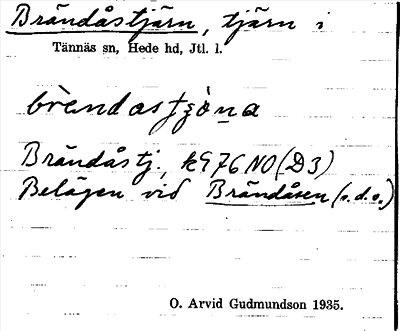 Brändåstjärn, tjärn i
Tännäs sn, Hede hd, Jtl. l.
Brändåstj., k976NO(D3)
Belägen vid Brändåsen (s.d.o.)
O. Arvid Gudmundson 1935.